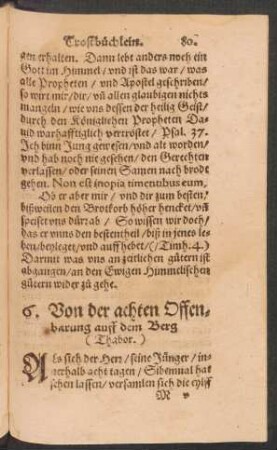 Trostbüchlein. 80.
gen erhalten. Dann lebt anders noch ein
Gott im Himmel / vnd ist das war / was
alle Propheten / vnd Apostel geschriben /
so wirt mir / dir / vñ allen glaubigen nichts
mangeln / wie vns dessen der heilig Geist /
durch den Königlichen Propheten Da-
uid warhafftiglich vertröstet / Psal. 37.
Ich binn Jung gewesen / vnd alt worden /
vnd hab noch nie gesehen / den Gerechten
verlassen / oder seinen Samen nach brodt
gehen. Non est inopia timentibus eum,
Ob er aber mir / vnd dir zum besten /
bißweilen den Brotkorb höher hencket / vñ
speiset vns dürr ab / So wissen wir doch /
das er vnns den bestentheil / biß in jenes le-
ben / beyleget / vnd auffhebet / (Timh. 4)
Darmit was vns an zeitlichen gütern ist
abgangen / an den Ewigen Himmelischen
gütern wider zu gehe.
6. Von der achten Offen-
barung auff dem Berg
(Thabor.)
Als sich der Herr / seine Jünger / in-
nerhalb acht tagen / Sibenmal hat
sehen lassen / versamlen sich die eylff
M